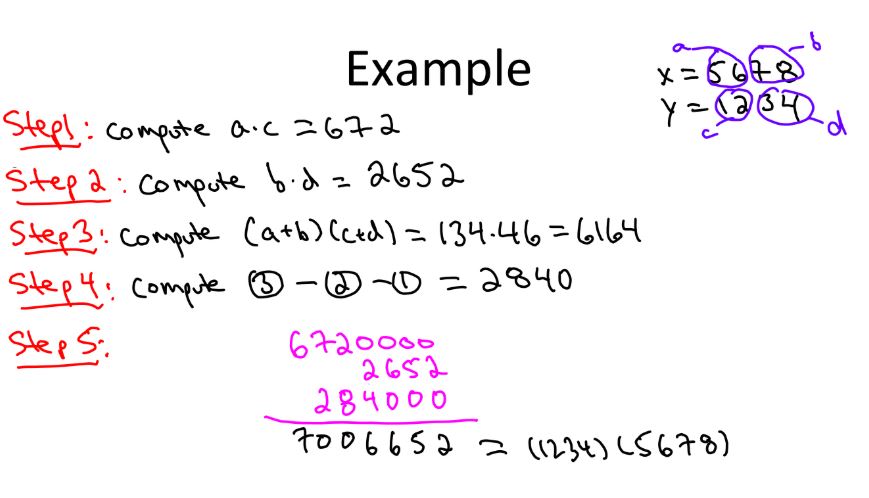 Example
a b
x = 5678
y = 1234
c d
Step1: compute a·c = 672
Step 2: compute b·d = 2652
Step3: compute (a+b)(c+d) = 134·46 = 6164
Step 4: compute ③ - ② - ① = 2840
Step 5:
6720000
2652
284000
7006652 = (1234)(5678)